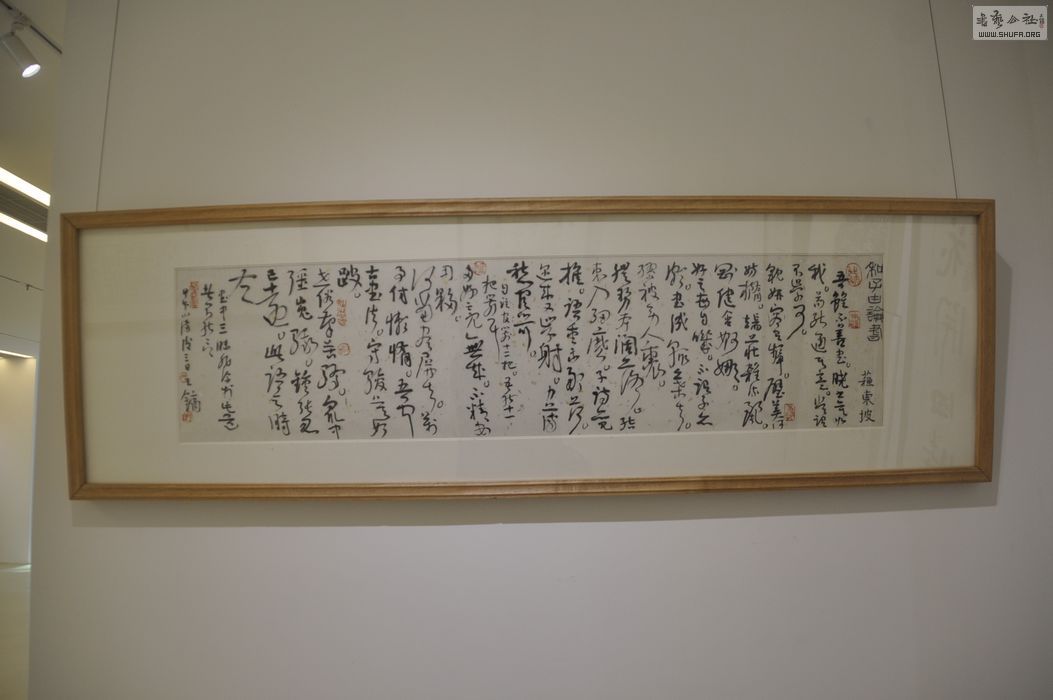 和子由論書 蘇東坡
吾雖不善書。曉書莫如
我。苟能通其意。常謂
不學可。
貌妍容有顰。璧美何
妨橢。端莊雜流麗。
剛健含婀娜。
好之每自譏。不謂子亦
頗。書成輒棄去。
謬被旁人裹。
體勢本闊落。結
束入細麼。子詩亦見
推。語重未敢荷。
邇來又學射。力薄
愁官笴。
官箭十二把。吾能十一
把箭耳
多好竟無成。不精安
用夥。
何當盡屏去。萬
事付懶惰。吾聞
古書法。守駿莫如
跛。
世俗筆苦驕。衆中
強嵬騀。鍾張忽
已遠。此語與時
左
甲午小滿後三日王鏞
書藝公社
WWW.SHUFA.ORG